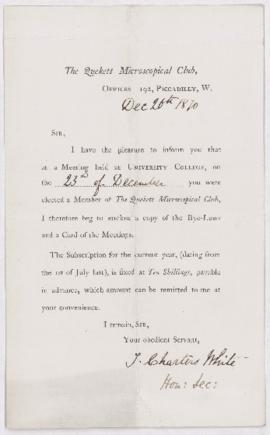 The Quekett Microscopical Club,
Offices 192, Piccadilly, W.
Dec 26th 1870
Sir,
I have the pleasure to inform you that
at a Meeting held at University College, on
the 23rd of December you were
elected a Member of The Quekett Microscopical Club,
I therefore beg to enclose a copy of the Bye-Laws
and a Card of the Meetings.
The Subscription for the current year, (dating from
the 1st of July last), is fixed at Ten Shillings, payable
in advance, which amount can be remitted to me at
your convenience.
I remain, Sir,
Your obedient Servant,
T. Charters White
Hon: Sec: